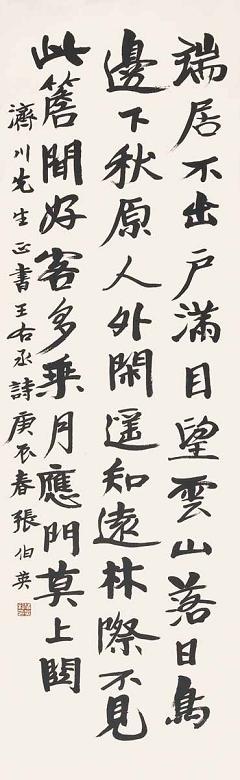 端居不出戶滿目望雲山落日鳥
邊下秋原人外閑遙知遠林際不見
此簷間好客多乘月應門莫上關
濟川先生正書王右丞詩庚辰春張伯英